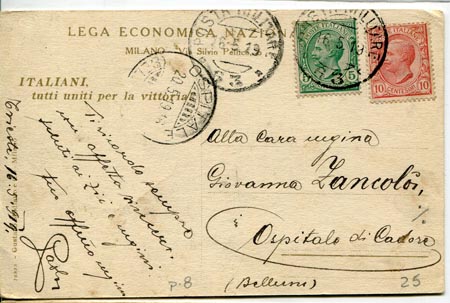 LEGA ECONOMICA NAZIONA
MILANO - Via Silvio Pellico
ITALIANI,
tutti uniti per la vittoria
POSTA MILITARE
3
OSPITALE
5
10 CENTESIMI 10
Trieste, 16.5.1919
Ti ricordo sempre
con affetto
saluti a zii e cugini.
tuo aff.mo cugino
Alla cara cugina
Giovanna Zancolò
Ospitale di Cadore
(Belluno)
p. 8
25